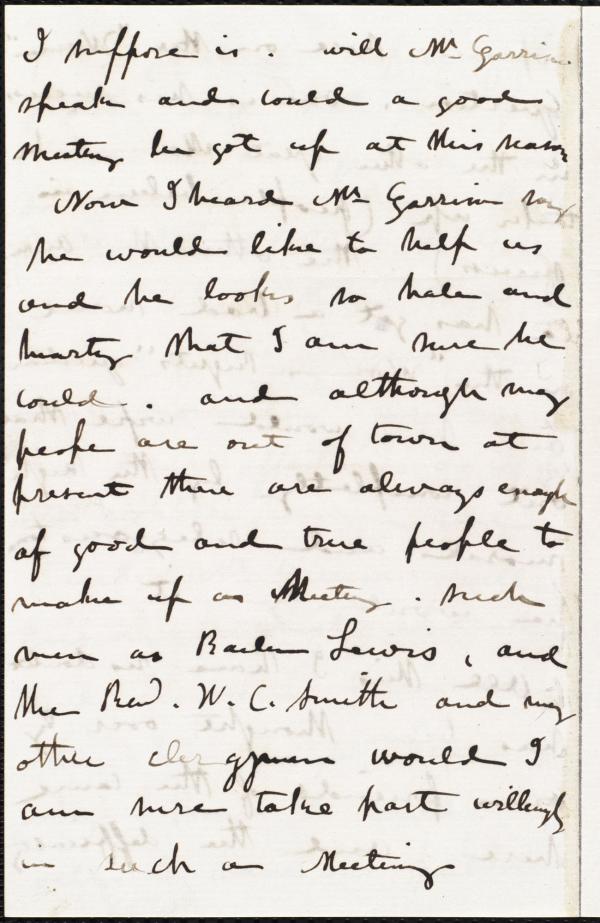 I suppose is. will Mr Garrison
speak and could a good
Meeting be got up at this season
Now I heard Mr Garrison say
he would like to help us
and he looks so hale and
hearty that I am sure he
could. and although many
people are out of town at
present there are always enough
of good and true people to
make up a Meeting. such
men as Lewis, and
the Revd. W. C. Smith and many
other clergymen would I
am sure take part willingly
in such a Meeting